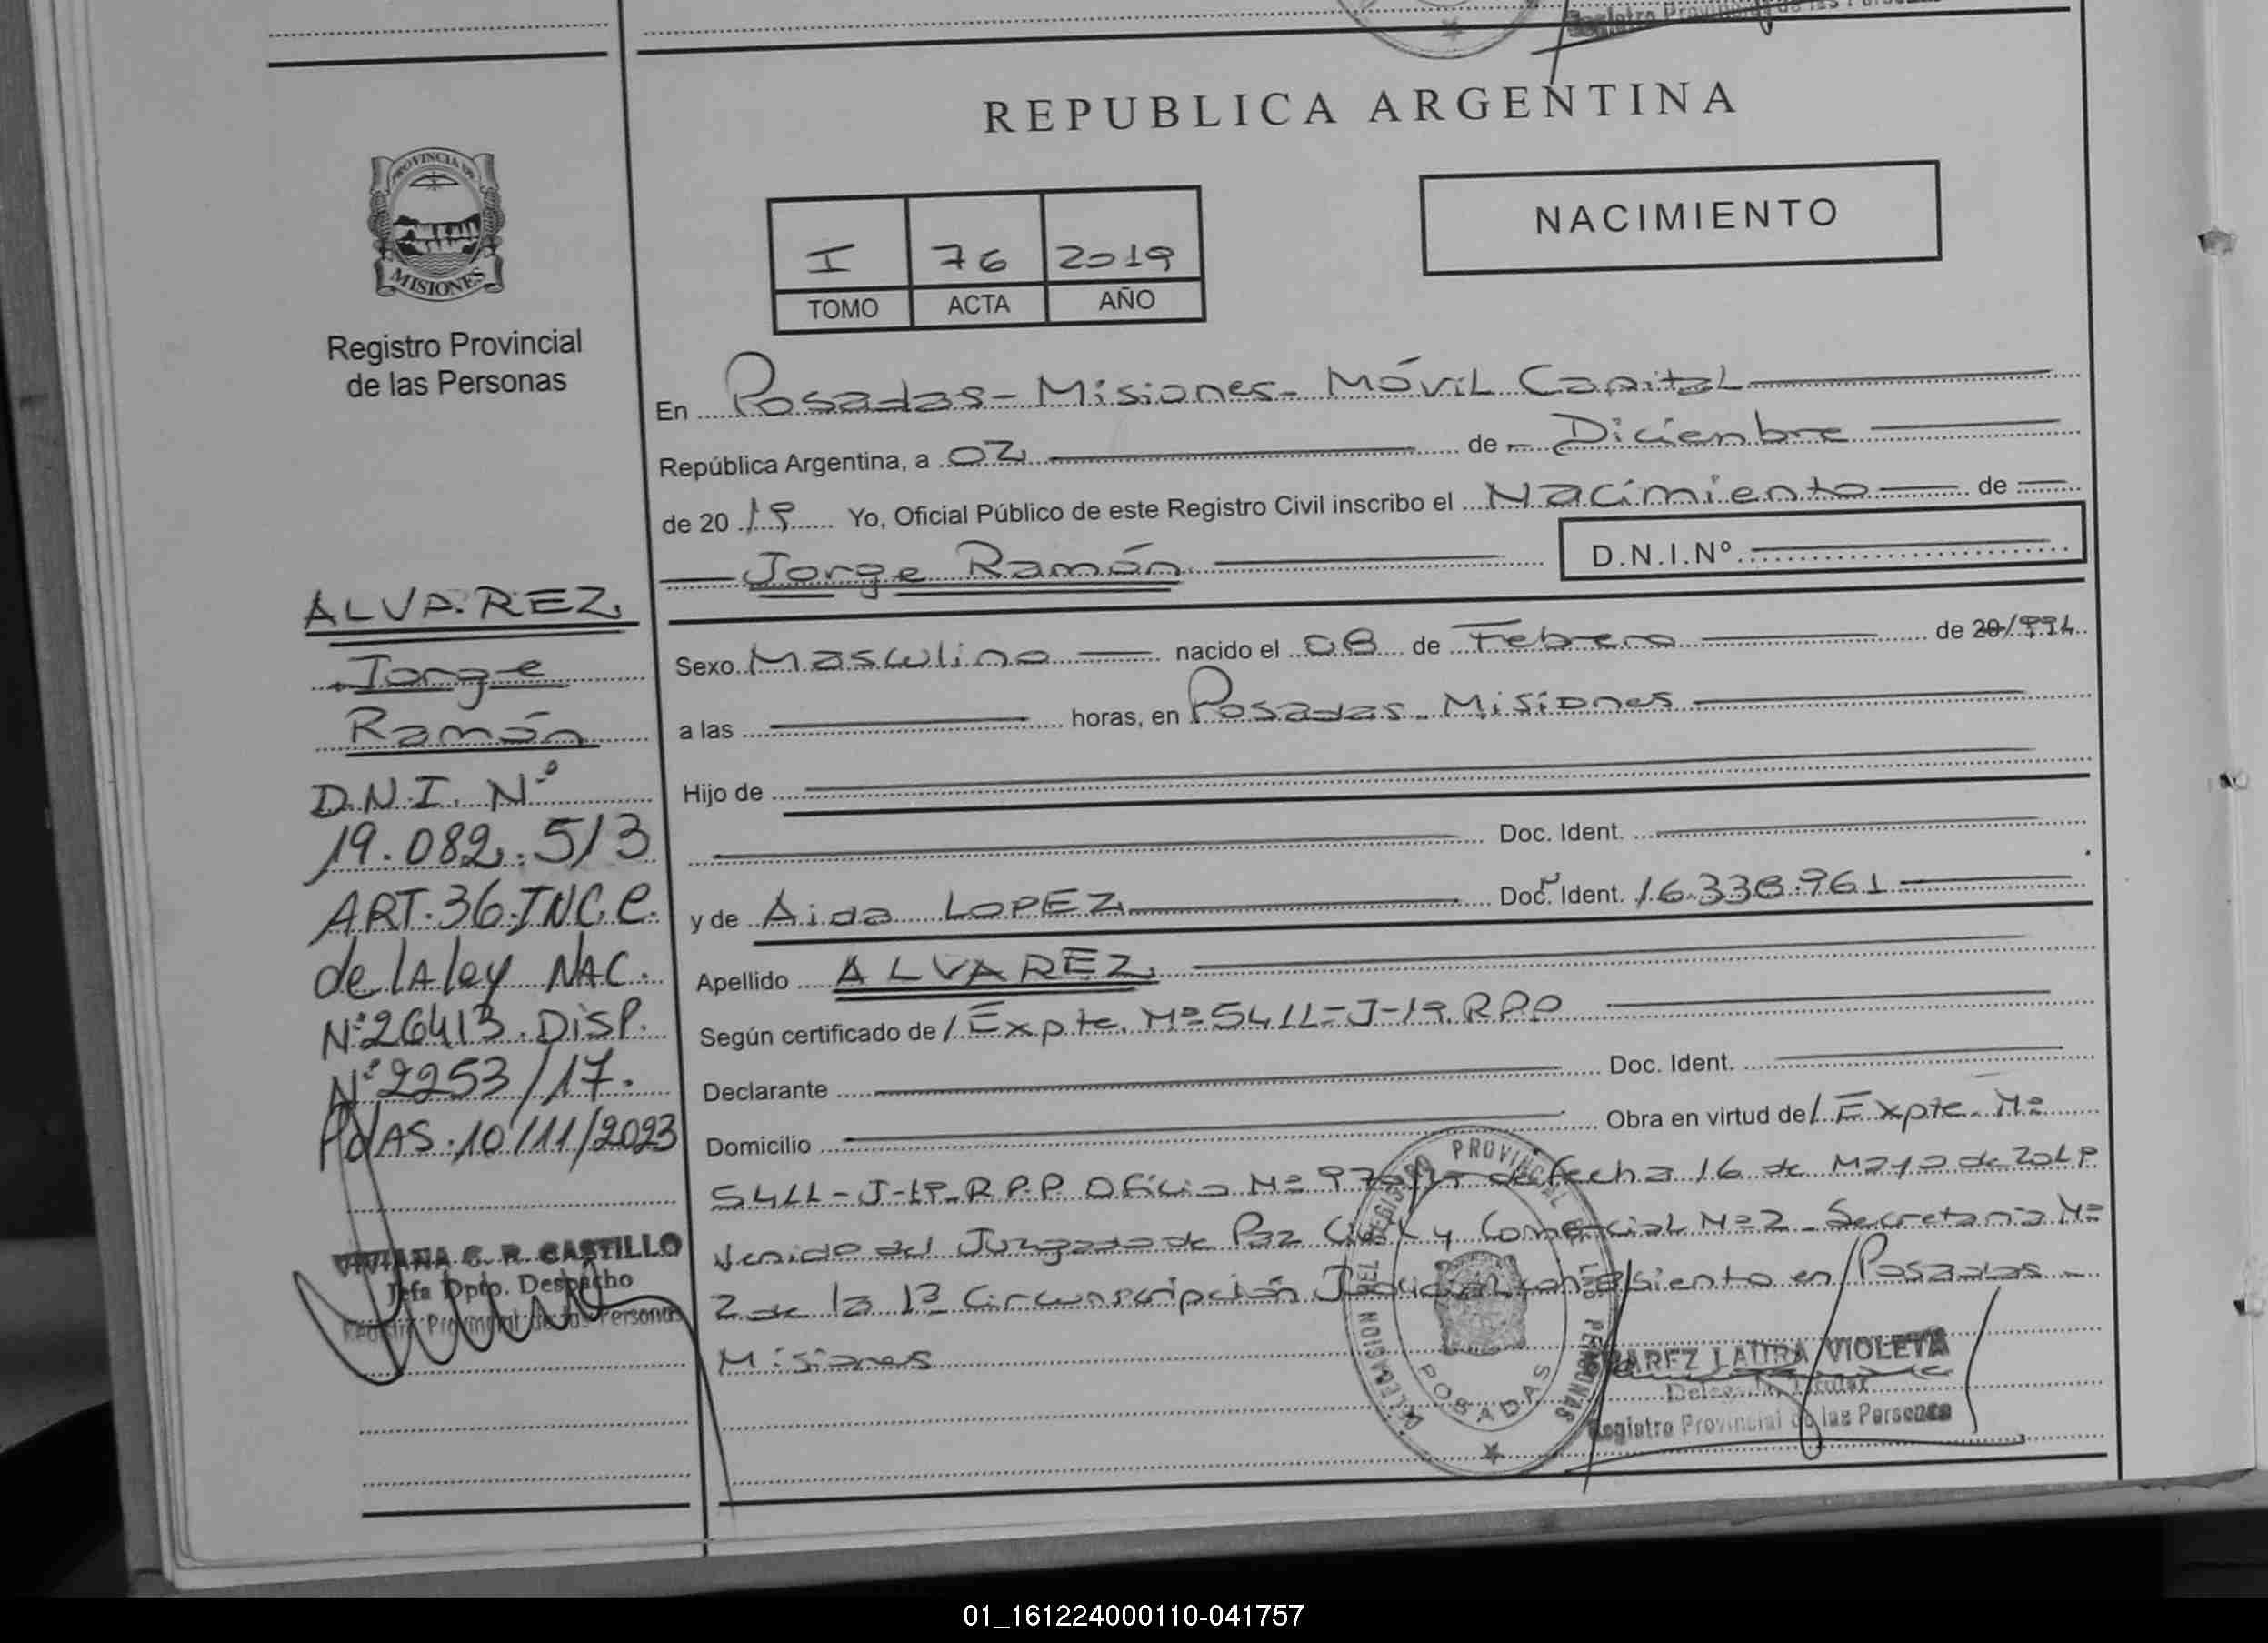 REPUBLICA ARGENTINA
PROVINCIA DE
MISIONES
Registro Provincial
de las Personas
NACIMIENTO
I 76 2019
TOMO ACTA AÑO
En Posadas - Misiones - Móvil Capital
República Argentina, a 02 de Diciembre
de 2019 Yo, Oficial Público de este Registro Civil inscribo el Nacimiento de
Jorge Ramón D.N.I.Nº
Sexo Masculino nacido el 08 de Febrero de 20/994
a las horas, en Posadas - Misiones
Hijo de
Doc. Ident.
y de Aida LOPEZ Doc. Ident. 16.338.961
Apellido ALVAREZ
Según certificado de / Expte. Nº 5411-J-19. RPP
Declarante Doc. Ident.
Domicilio Obra en virtud de / Expte. Nº
5411-J-19-R.P.P. Oficio Nº de fecha 16 de Mayo de 2019
Venido del Juzgado de Paz Civil y Comercial Nº 2 - Secretaria Nº
2 de la 1ª Circunscripción Judicial con asiento en Posadas -
Misiones
ALVAREZ
Jorge
Ramón
D.N.I. Nº
19.082.513
ART. 36. INC. e.
de la ley NAC.
Nº 26413. DISP.
Nº 2253/17.
PdAS. 10/11/2023
VIVIANA C. R. CASTILLO
Jefa Dpto. Despacho
Registro Provincial de las Personas
DELEGACION DEL REGISTRO PROVINCIAL DE LAS PERSONAS
POSADAS
LAURA VIOLETA
Delegada Titular
Registro Provincial de las Personas
01_161224000110-041757